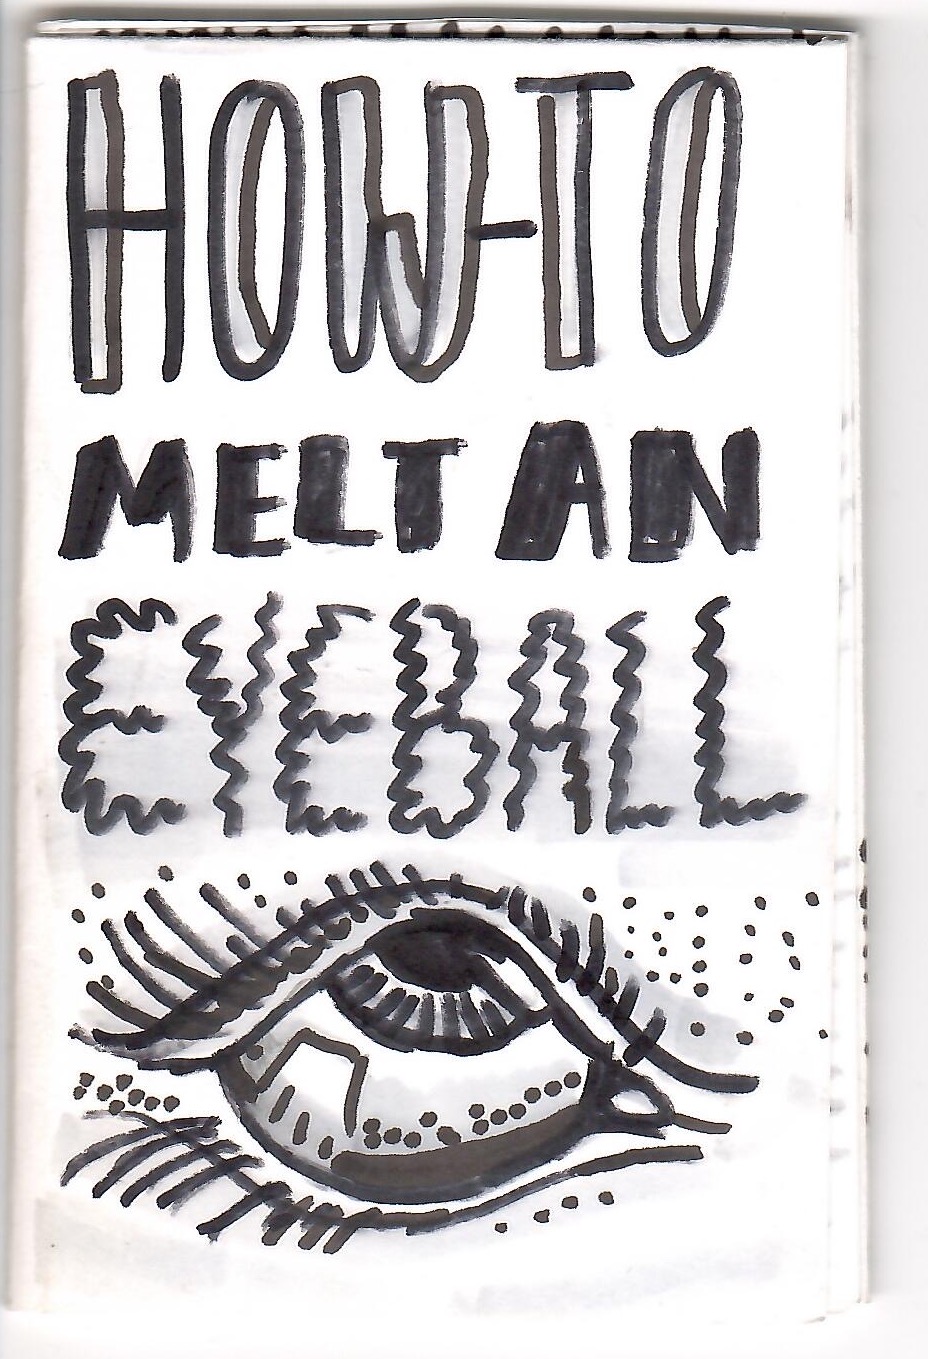 HOW-TO
MELT AN
EYEBALL